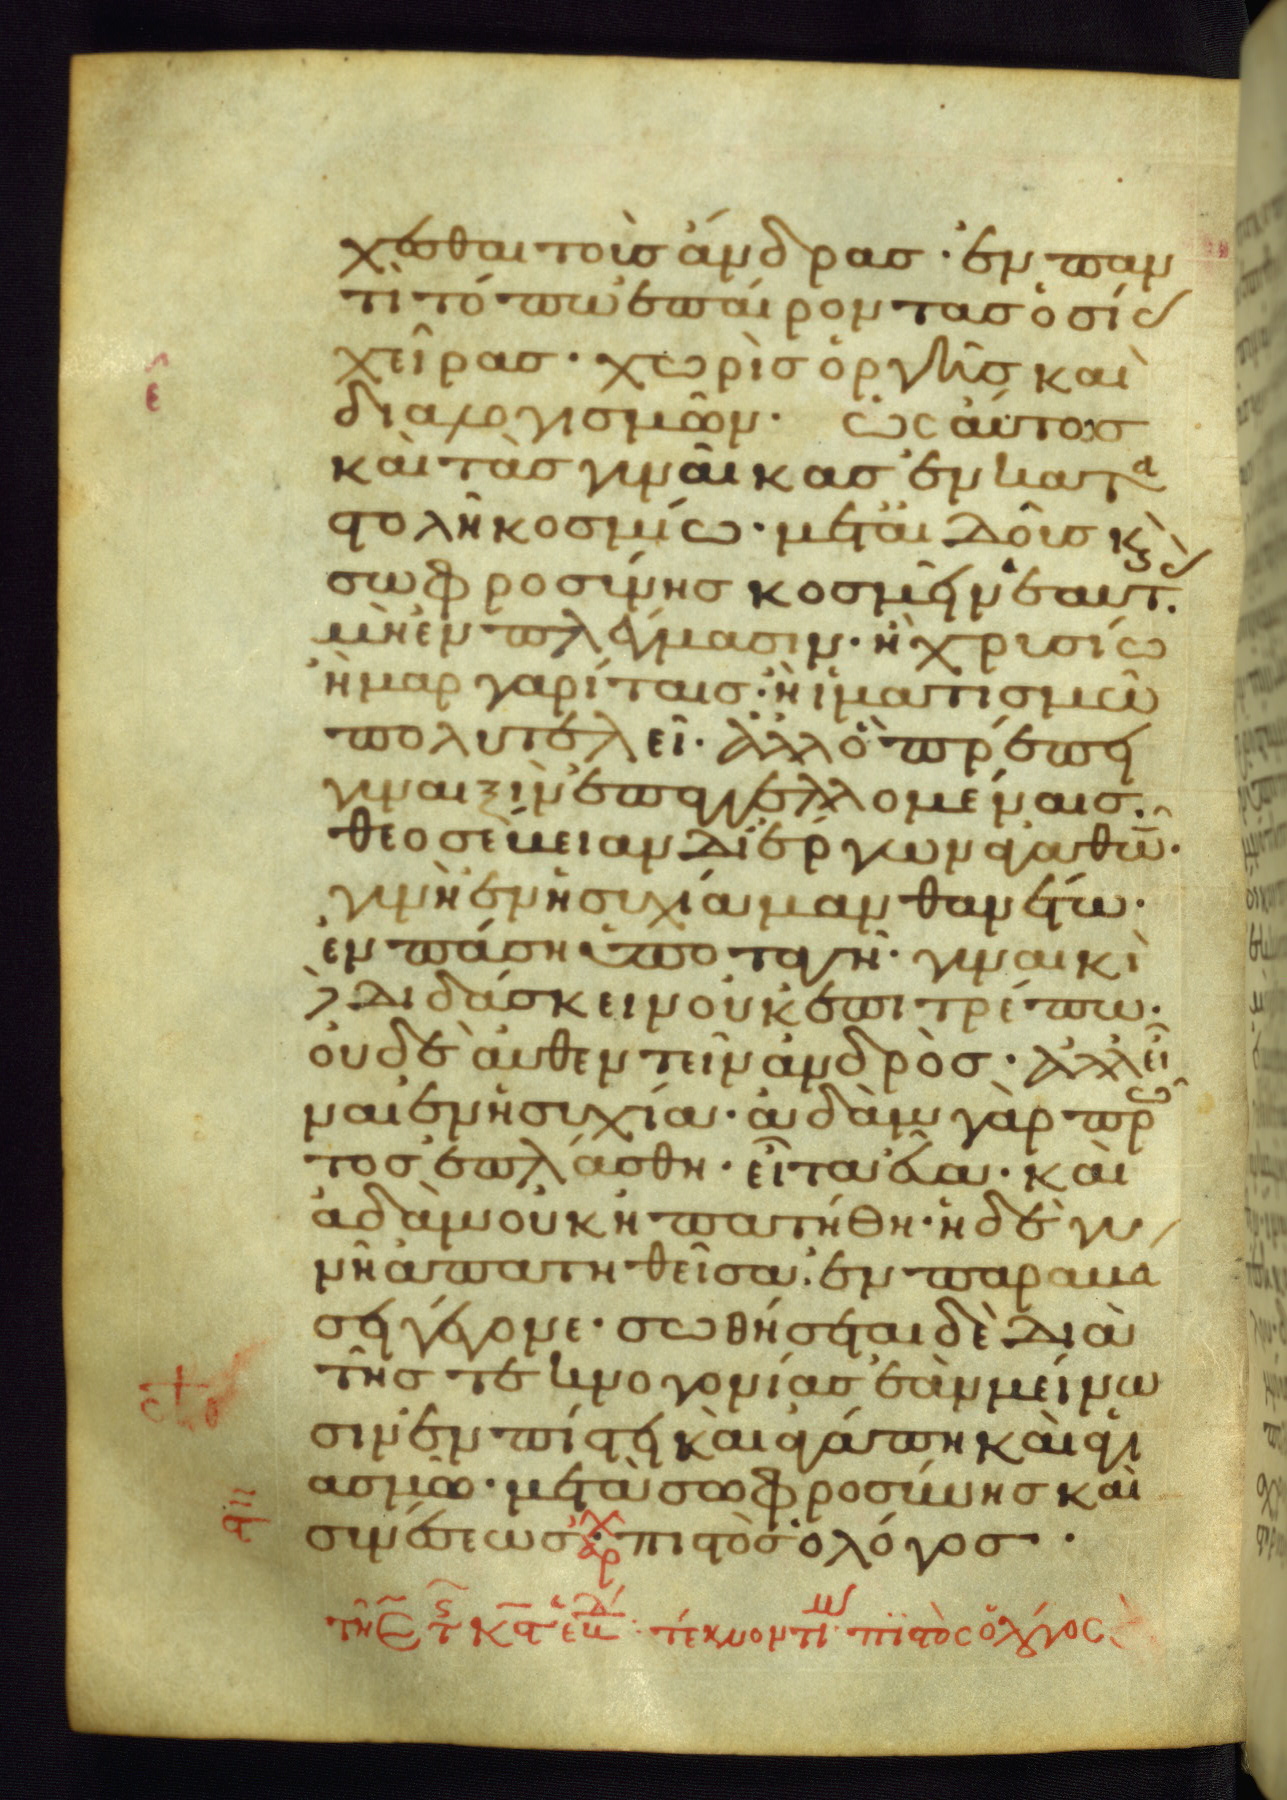 χεσθαι τοὺς ἄνδρας · ἐν παν
τὶ τόπω ἐπαίροντας ὁσίους
χεῖρας · χωρὶς ὀργῆς καὶ
διαλογισμῶν · ὡσαύτως
καὶ τὰς γυναῖκας ἐν κατα
στολῆ κοσμίω · μετὰ αἰδοῦς κ(αὶ)
σωφροσύνης κοσμεῖν ἑαυτ(άς) .
μὴ ἐν πλέγμασιν · ἢ χρυσίω
ἢ μαργαρίταις · ἢ ἱματισμῶ
πολυτελεῖ · ἀλλ' ὃ πρέπει
γυναιξὶν ἐπαγγελλομέναις .
θεοσέβειαν δι' ἔργων ἀγαθῶν ·
γυνὴ ἐν ἡσυχία μανθανέτω ·
ἐν πάση ὑποταγῆ · γυναικὶ
δὲ διδάσκειν οὐκ ἐπιτρέπω ·
οὐδὲ αὐθεντεῖν ἀνδρὸς · ἀλλ' εἶ
ναι ἐν ἡσυχία · ἀδὰμ γὰρ πρῶ
τος ἐπλάσθη · εἶτα εὔα · καὶ
ἀδὰμ οὐκ ἠπατήθη · ἡ δὲ γυ
νὴ ἀπατηθεῖσα · ἐν παραβά
σει γέγονε · σωθήσεται δὲ διὰ
τῆς τεκνογονίας ἐὰν μείνω
σιν ἐν πίστει καὶ ἀγάπη καὶ ἁγι
ασμῶ · μετὰ σωφροσύνης καὶ
συνέσεως · ἀρχ πιστὸς ὁ λόγος ·
τέκνον τιμ · πιστὸς ὁ λόγος